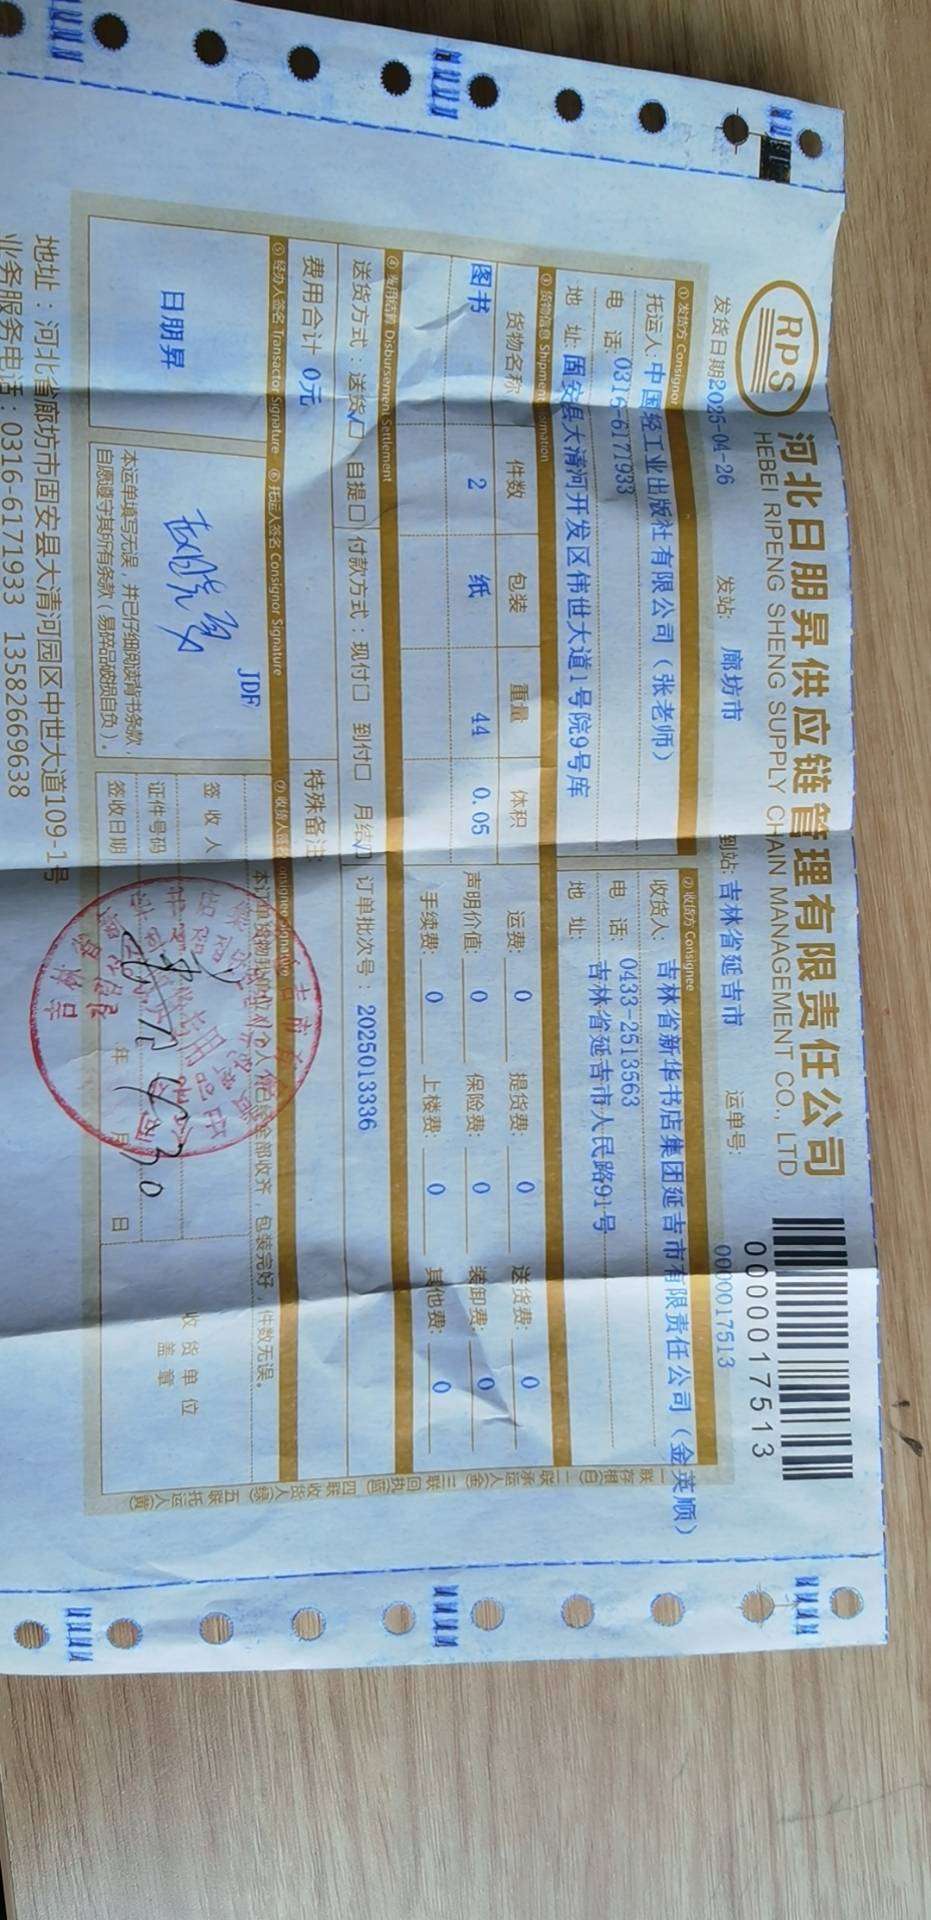 RPS
河北日朋昇供应链管理有限责任公司
HEBEI RIPENG SHENG SUPPLY CHAIN MANAGEMENT CO., LTD
0000017513
发货日期2025-04-26 发站: 廊坊市 到站: 吉林省延吉市 运单号: 0000017513
① 发货方 Consignor ② 收货方 Consignee
托运人: 中国轻工业出版社有限公司（张老师） 收货人: 吉林省新华书店集团延吉市有限责任公司（金英顺）
电 话: 0316-6171933 电 话: 0433-2513563
地 址: 固安县大清河开发区伟世大道1号院9号库 地 址: 吉林省延吉市人民路91号
③ 货物信息 Shipment Information
货物名称 件数 包装 重量 体积 运费: 0 提货费: 0 送货费: 0
图书 2 纸 44 0.05 声明价值: 0 保险费: 0 装卸费: 0
手续费: 0 上楼费: 0 其他费: 0
④ 费用结算 Disbursement Settlement
送货方式：送货√口 自提口 付款方式：现付口 到付口 月结√口 订单批次号：2025013336
费用合计 0元 特殊备注
⑤ 经办人签名 Transactor Signature ⑥ 托运人签名 Consignor Signature ⑦ 收货人签名 Consignee Signature
日朋昇
JDF
全部收齐，包装完好，件数无误。
签收人
证件号码
签收日期 年 月 日
收货单位
盖章
本运单填写无误，并已仔细阅读背书条款
自愿遵守其所有条款（易碎品破损自负）。
一联存根(白) 二联承运人(金) 三联回执(蓝) 四联收货人(绿) 五联托运人(黄)
地址：河北省廊坊市固安县大清河园区中世大道109-1号
业务服务电话：0316-6171933 13582669638